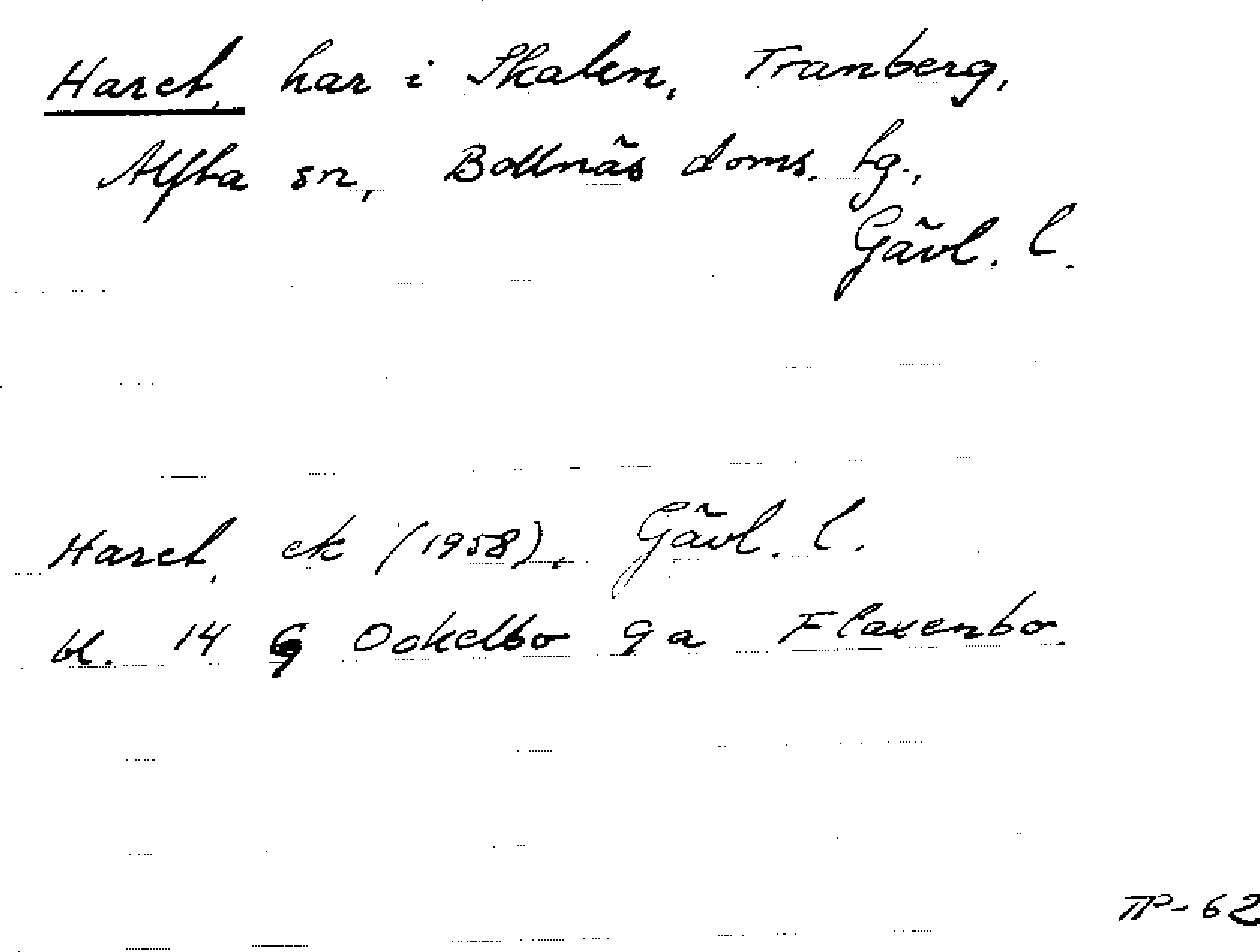 Haret, har i Skålen, Tranberg,
Alfta sn, Bollnäs doms. tg.,
Gävl. l.
Haret, ek (1958), Gävl. l.
bl. 14 G Ockelbo 9 a Flaxenbo.
TP-62